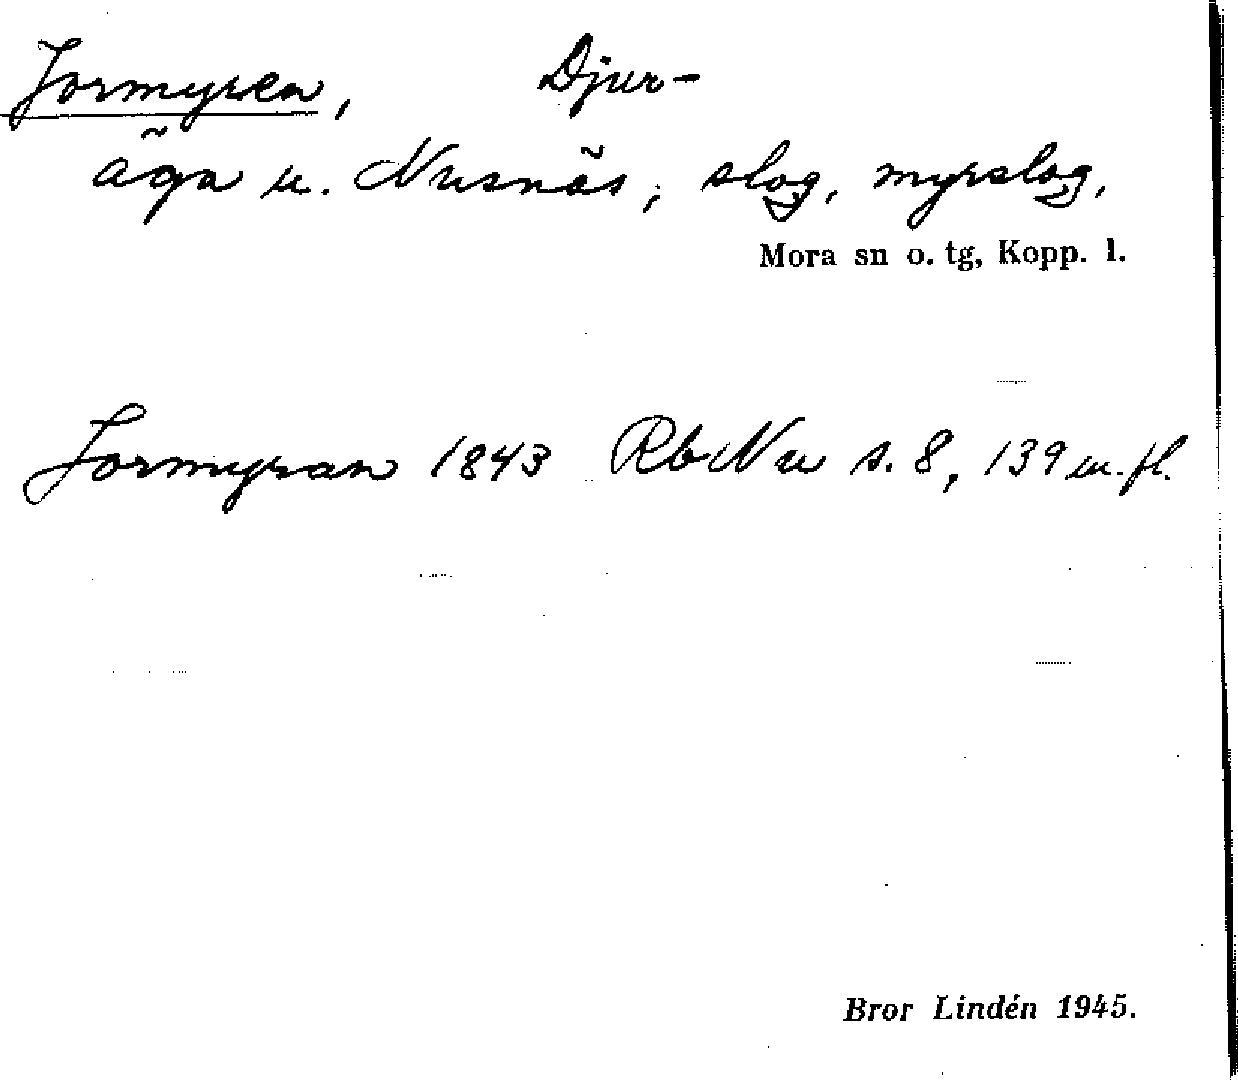 Jormyren, Djur-
äga u. Nusnäs; slog, myrslog,
Mora sn o. tg, Kopp. l.
Jormyran 1843 RbNu s. 8, 139 m. fl.
Bror Lindén 1945.